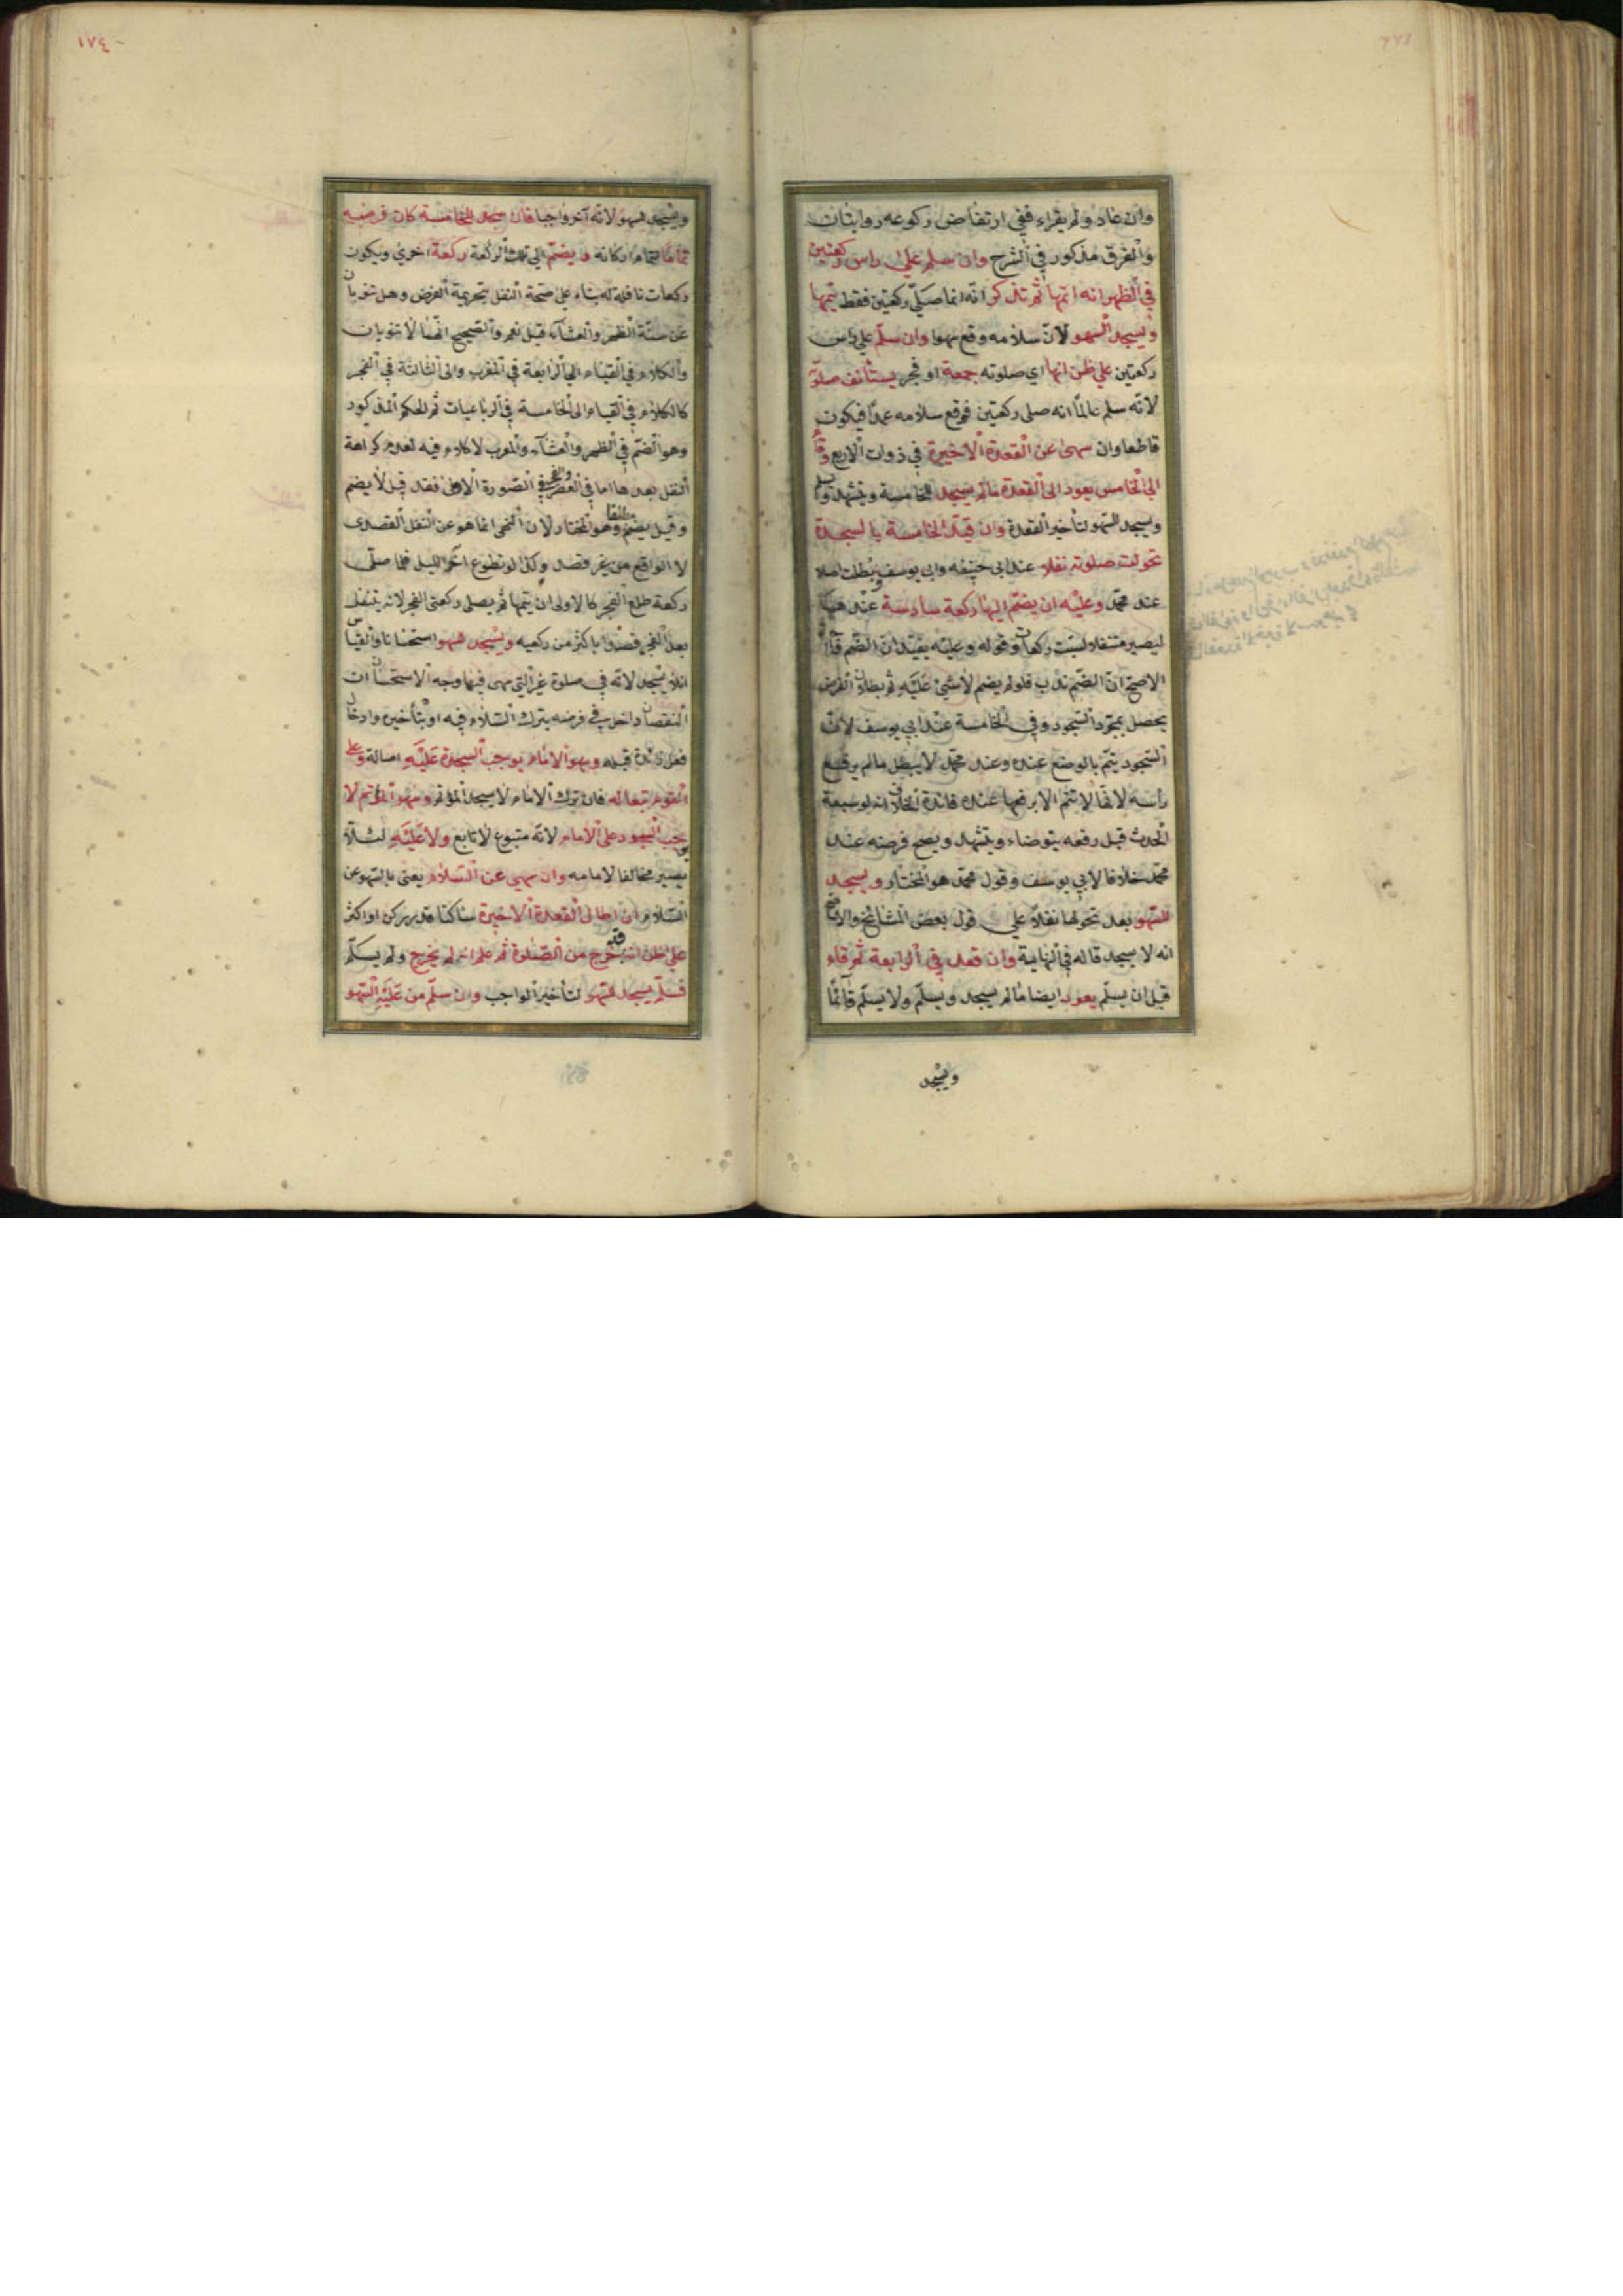 وان عاد ولم يقراء ففي ارتفاض ركوعه روايتان
والفرق مذكور في الشرح وان سلم علي راس ركعتين
في الظهر انه اتمها ثم تذكر انه انما صلي ركعتين فقط يتمها
ويسجد السهو لان سلامه وقع سهوا وان سلم علي راس
ركعتين علي ظن انها اي صلوته جمعة او فجر يستأنف صلوته
لانه سلم عالما انه صلى ركعتين فوقع سلامه عمدا فيكون
قاطعا وان سهى عن القعدة الاخيرة في ذوات الاربع وقام
الي الخامس يعود الى القعدة مالم يسجد للخامسة ويتشهد ويسلم
ويسجد للسهو لتأخير القعدة وان قيد الخامسة بالسجدة
تحولت صلوته نفلا عند ابى حنيفه وابى يوسف وبطلت اصلا
عند محمد وعليه ان يضم اليها ركعة سادسة عندهما
ليصير متنفلا لست ركعات وقوله وعليه يفيد ان الضم
الاصح ان الضم ندب فلو لم يضم لا شئ عليه ثم بطلان الفرض
يحصل بمجرد السجود وفي الخامسة عند ابي يوسف لان
السجود يتم بالوضع عنده وعند محمد لا يبطل مالم يرفع
رأسه لانها لا تتم الا برفعها عنده فائدة الخلاف انه لو سبقه
الحدث قبل رفعه يتوضاء ويتشهد ويصح فرضه عند
محمد خلافا لابي يوسف وقول محمد هو المختار ويسجد
للسهو بعد تحولها نفلا علي قول بعض المشائخ والاصح
انه لا يسجد قاله في النهاية وان قعد في الرابعة ثم قام
قبل ان يسلم يعود ايضا مالم يسجد ويسلم ولا يسلم قائما
ويسجد
١٧٤
ويسجد للسهو لانه آخر واجبا فان سجد للخامسة كان فرضه
تماما لتمام اركانه ويضم الي تلك الركعة ركعة اخري ويكون
ركعات نافلة له بناء على صحة النفل بتحريمة الفرض وهل تنوبان
عن سنة الظهر والعشاء قيل نعم والصحيح انهما لا تنوبان
والكلام في القيام الي الرابعة في المغرب والى الثالثة في الفجر
كالكلام في القيام الى الخامسة في الرباعيات ثم الحكم المذكور
وهو الضم في الظهر والعشاء والمغرب لا كلام فيه لعدم كراهة
النفل بعدها اما في العصر والفجر في الصورة الاولى فقد قيل لا يضم
وقيل يضم مطلقا وهو المختار لان النهى انما هو عن النفل القصدى
لا الواقع من غير قصد وكذا لو تطوع اخر الليل فلما صلى
ركعة طلع الفجر كا الاولى ان يتمها ثم يصلى ركعتى الفجر لانه يتنفل
بعد الفجر قصدا باكثر من ركعيه ويسجد للسهو استحسانا والقياس
ان لا يسجد لانه في صلوة غير التي سهى فيها وجه الاستحسان ان
النقصان داخل في فرضه بترك السلام فيه او بتأخيره وادخال
فعل زائدة قبله وسهو الامام يوجب السجدة عليه اصالة وعلى
القوم تبعا له فان ترك الامام لا يسجد المؤتم وسهو المؤتم لا
يوجب السجود على الامام لانه متبوع لا تابع ولا عليه لئلا
يصير مخالفا لامامه وان سهى عن السلام يعنى بالسهو عن
السلام ان اطال القعدة الاخيرة ساكتا قدر ركن او اكثر
على ظن انه قد خرج من الصلوة ثم علم انه لم يخرج ولم يسلم
فسلم يسجد للسهو لتأخير الواجب وان سلم من عليه السهو